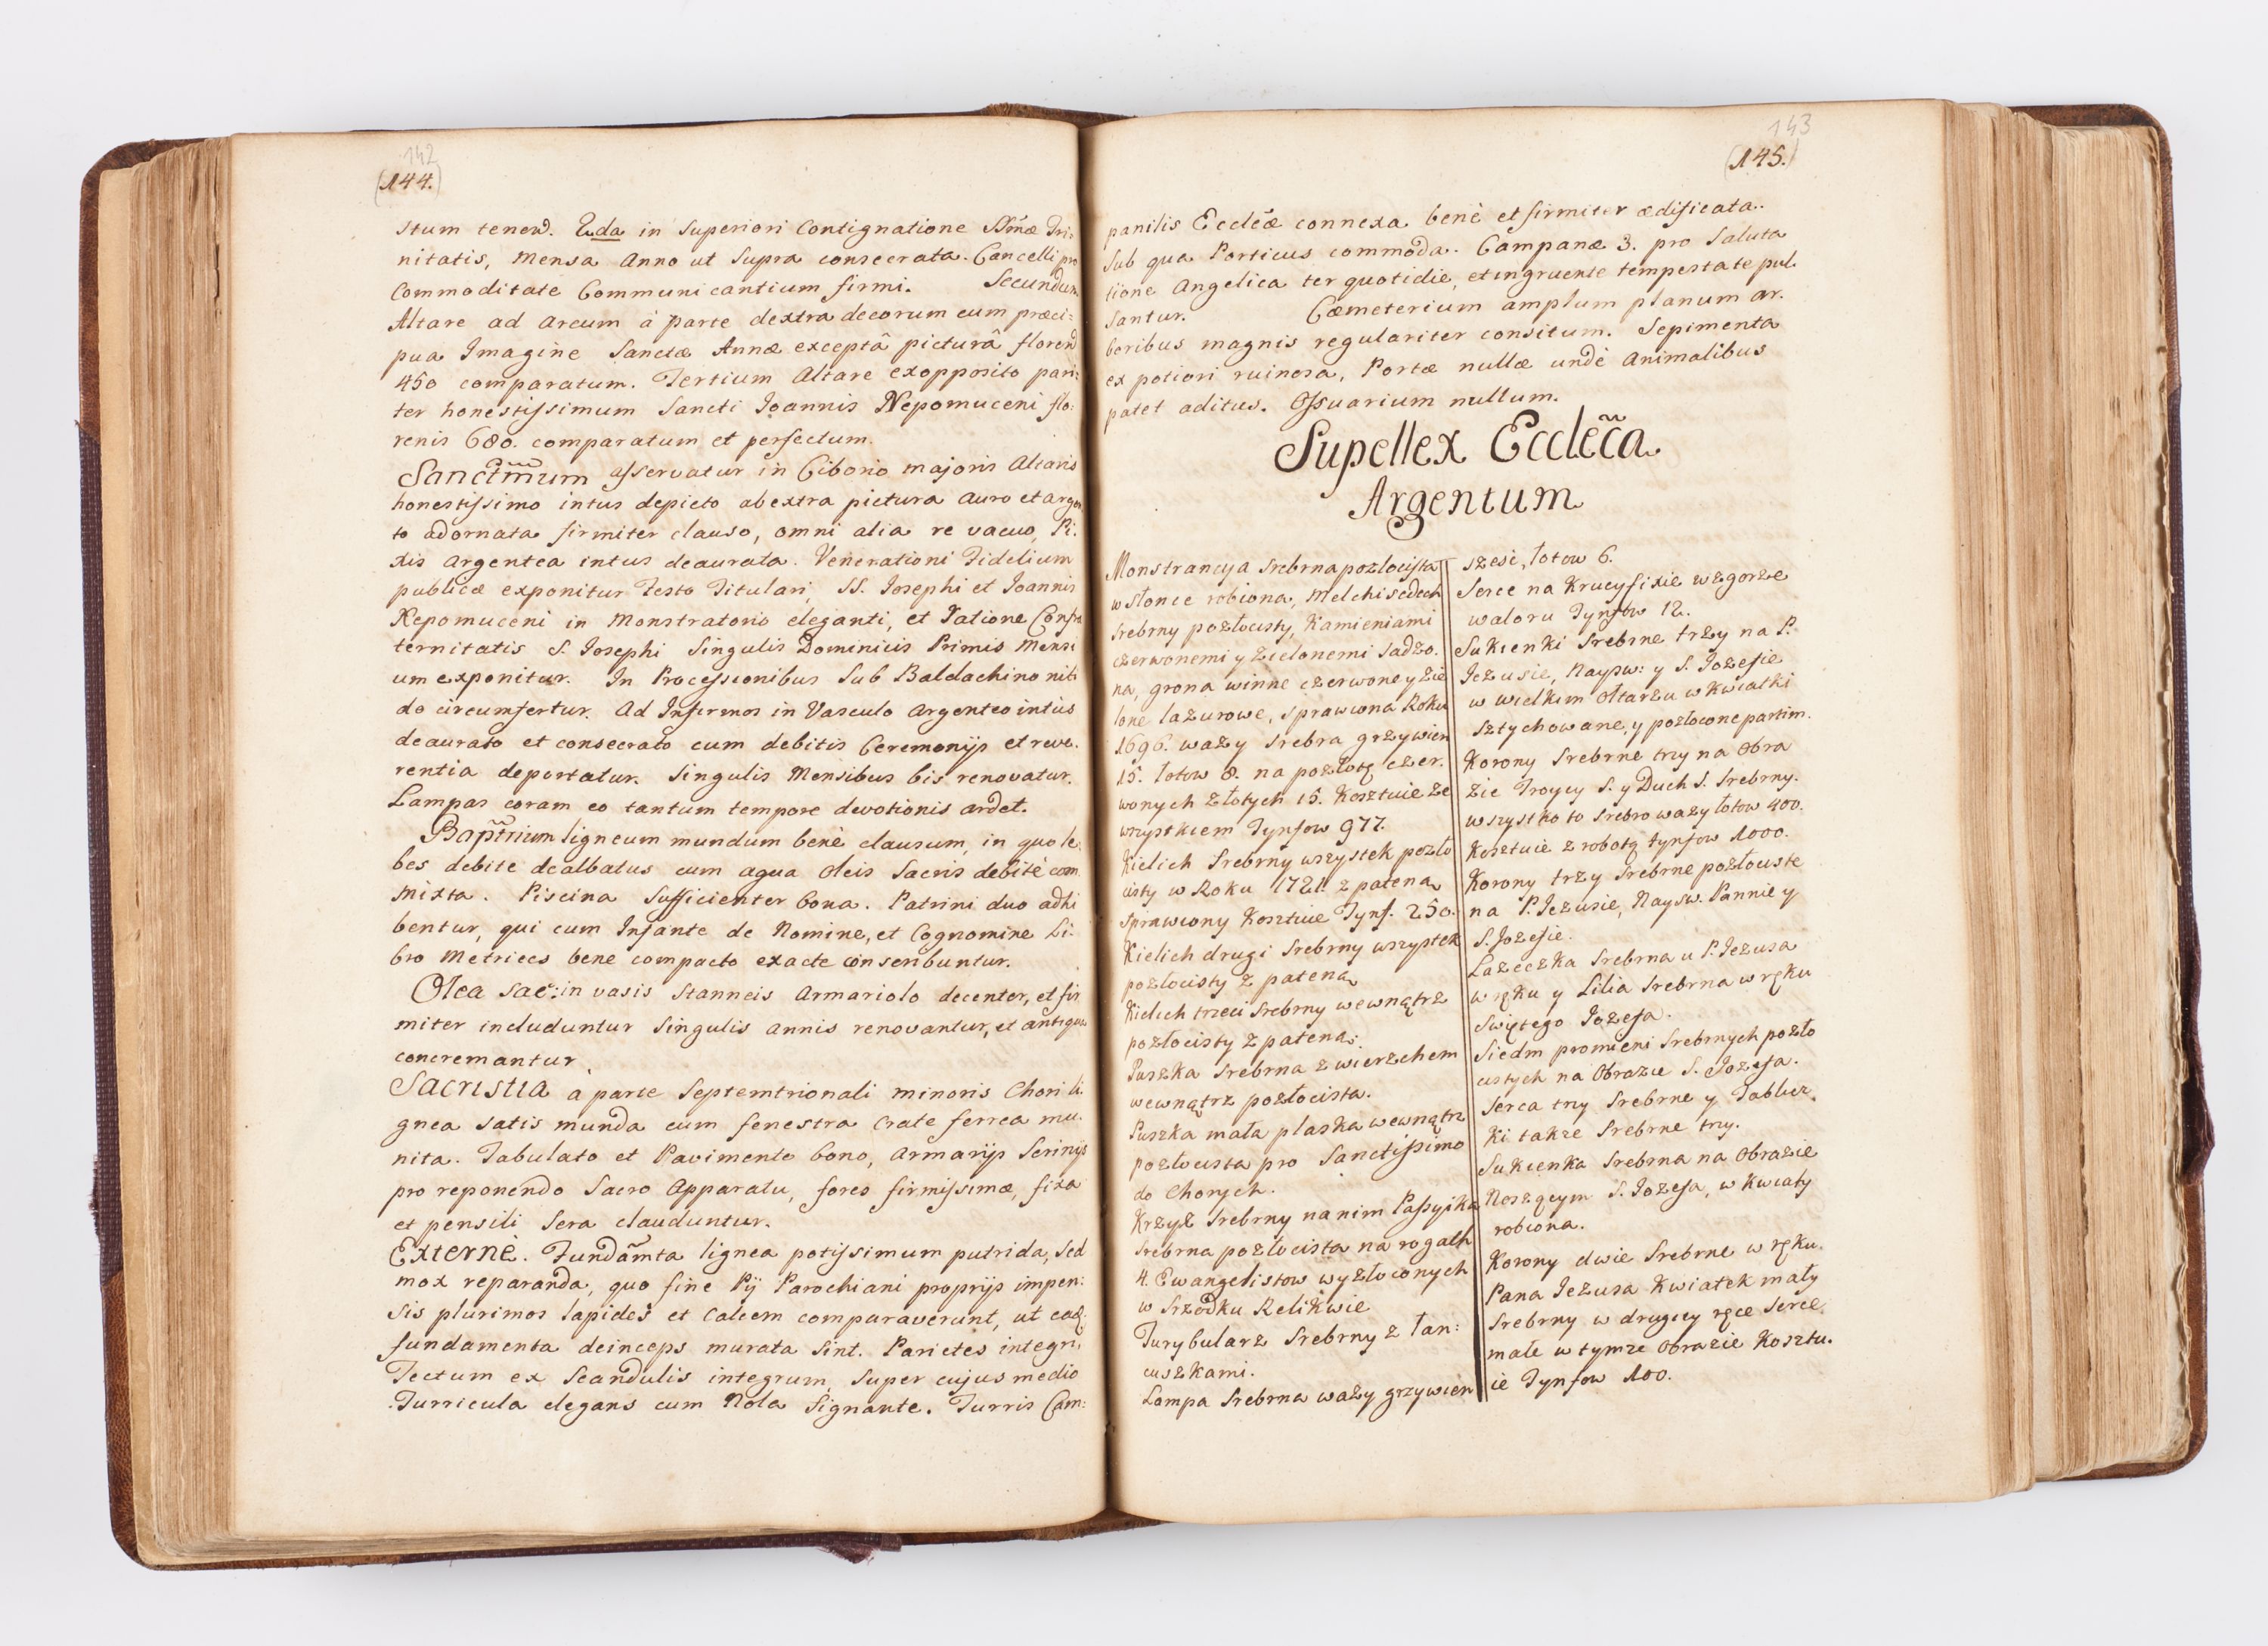 142
(144.)
stum tenend. 2da in Superiori Contignatione SSmæ Tri:
nitatis, Mensa Anno ut Supra consecrata. Cancelli pro
Commoditate Communicantium firmi. Secundum
Altare ad Arcum à parte dextra decorum cum præci:
pua Imagine Sanctæ Annæ exceptâ picturâ florend
450 comparatum. Tertium Altare exopposito pari:
ter honestissimum Sancti Joannis Nepomuceni flo:
renis 680. comparatum et perfectum.
Sanctm̃um asservatur in Ciborio majoris Altaris
honestissimo intus depicto ab extra pictura auro et argen
to adornata firmiter clauso, omni alia re vacuo, Pi.
xis Argentea intus deaurata. Venerationi Fidelium
publicæ exponitur Festo Titulari, SS. Josephi et Joannis
Nepomuceni in Monstratorio eleganti, et Ratione Confra
ternitatis S. Josephi Singulis Dominicis Primis Mensi
um exponitur. In Processionibus Sub Baldachino niti
do circumfertur. Ad Infirmos in Vasculo Argenteo intus
deaurato et consecrato cum debitis Ceremonijs et reve.
rentia deportatur. Singulis Mensibus bis renovatur.
Lampas coram eo tantum tempore devotionis ardet.
Bapt̃rium ligneum mundum benè clausum, in quo le.
bes debite dealbatus cum aqua Oleis Sacris debitè com
mixta. Piscina Sufficienter bona. Patrini duo adhi
bentur, qui cum Infante de Nomine, et Cognomine Li.
bro Metrices bene compacto exacte conscribuntur.
Olea Sac: in vasis Stanneis Armariolo decenter, et fir
miter includuntur Singulis annis renovantur, et antiqua
concremantur.
Sacristia à parte Septemtrionali minoris Chori li.
gnea Satis munda cum fenestra Crate ferrea mu.
nita. Tabulato et Pavimento bono, Armarijs Scrinijs
pro reponendo Sacro Apparatu, fores firmissimæ, fixa
et pensili Sera clauduntur.
Externè. Fundam̃ta lignea potissimum putrida, Sed
mox reparanda, quo fine Pij Parochiani proprijs impen:
sis plurimos lapides et Calcem comparaverunt, ut eaq.
fundamenta deinceps murata Sint. Parietes integri,
Tectum ex Scandulis integrum, Super cujus medio
Turricula elegans cum Nola Signante. Turris Cam:
143
(145.)
panilis Eccl̃eæ connexa benè et firmiter ædificata.
Sub qua Porticus commoda. Campanæ 3. pro Saluta
tione Angelica ter quotidie, et ingruente tempestate pul.
santur. Cæmeterium amplum planum ar.
boribus magnis regulariter consitum. Sepimenta
ex potiori ruinosa, Portæ nullæ undè Animalibus
patet aditus. Ossuarium nullum.
Supellex Eccl̃eca
Argentum
Monstrancya Srebrna pozłocista
w Słonce robiona, Melchisedech
Srebrny pozłocisty, Kamieniami
czerwonemi y Zielonemi Sadzo.
na, grona winne czerwone y Zie
lone lazurowe, sprawiona Roku
1696. waży Srebra grzywien
15. łotow 8. na pozłotę czer.
wonych Złotych 15. Kosztuie ze
wszystkiem Tynfow 977.
Kielich Srebrny wszystek pozło
cisty w Roku 1721. z pateną
Sprawiony Kosztuie Tynf. 250.
Kielich drugi Srebrny wszystek
pozłocisty z pateną
Kielich trzeci Srebrny wewnątrz
pozłocisty z pateną.
Puszka Srebrna z wierzchem
wewnątrz pozłocista.
Puszka mała plaska wewnątrz
pozłocista pro Sanctissimo
do Chorych.
Krzyż Srebrny na nim Passyika
Srebrna pozłocista na rogach
4. Ewangelistow wyzłoconych
w Srzodku Relikwie
Turybularz Srebrny z łan:
cuszkami.
Lampa Srebrna waży grzywien
szesć, łotow 6.
Serce na Krucyfixie wzgorze
waloru Tynfow 12.
Sukienki Srebrne trzy na P.
Jezusie, Nayśw: y S. Jozefie
w wielkim Ołtarzu w Kwiatki
Sztychowane, y pozłocone partim.
Korony Srebrne trzy na Obra
zie Troycy S. y Duch S. Srebrny.
wszystko to Srebro waży łotow 400.
Kosztuie z robotą tynfow 1000.
Korony trzy Srebrne pozłociste
na P. Jezusie, Nayśw. Pannie y
S. Jozefie.
Lazeczka Srebrna u P. Jezusa
w ręku y Lilia Srebrna w ręku
Swiętego Jozefa.
Siedm promieni Srebrnych pozło
cistych na Obrazie S. Jozefa.
Serca trzy Srebrne y Tablicz.
ki takze Srebrne trzy.
Sukienka Srebrna na Obrazie
Noszącym S. Jozefa, w Kwiaty
robiona.
Korony dwie Srebrne w ręku.
Pana Jezusa Kwiatek mały
Srebrny w drugiey ręce Serce
małe w tymze Obrazie Kosztu.
ie Tynfow 100.